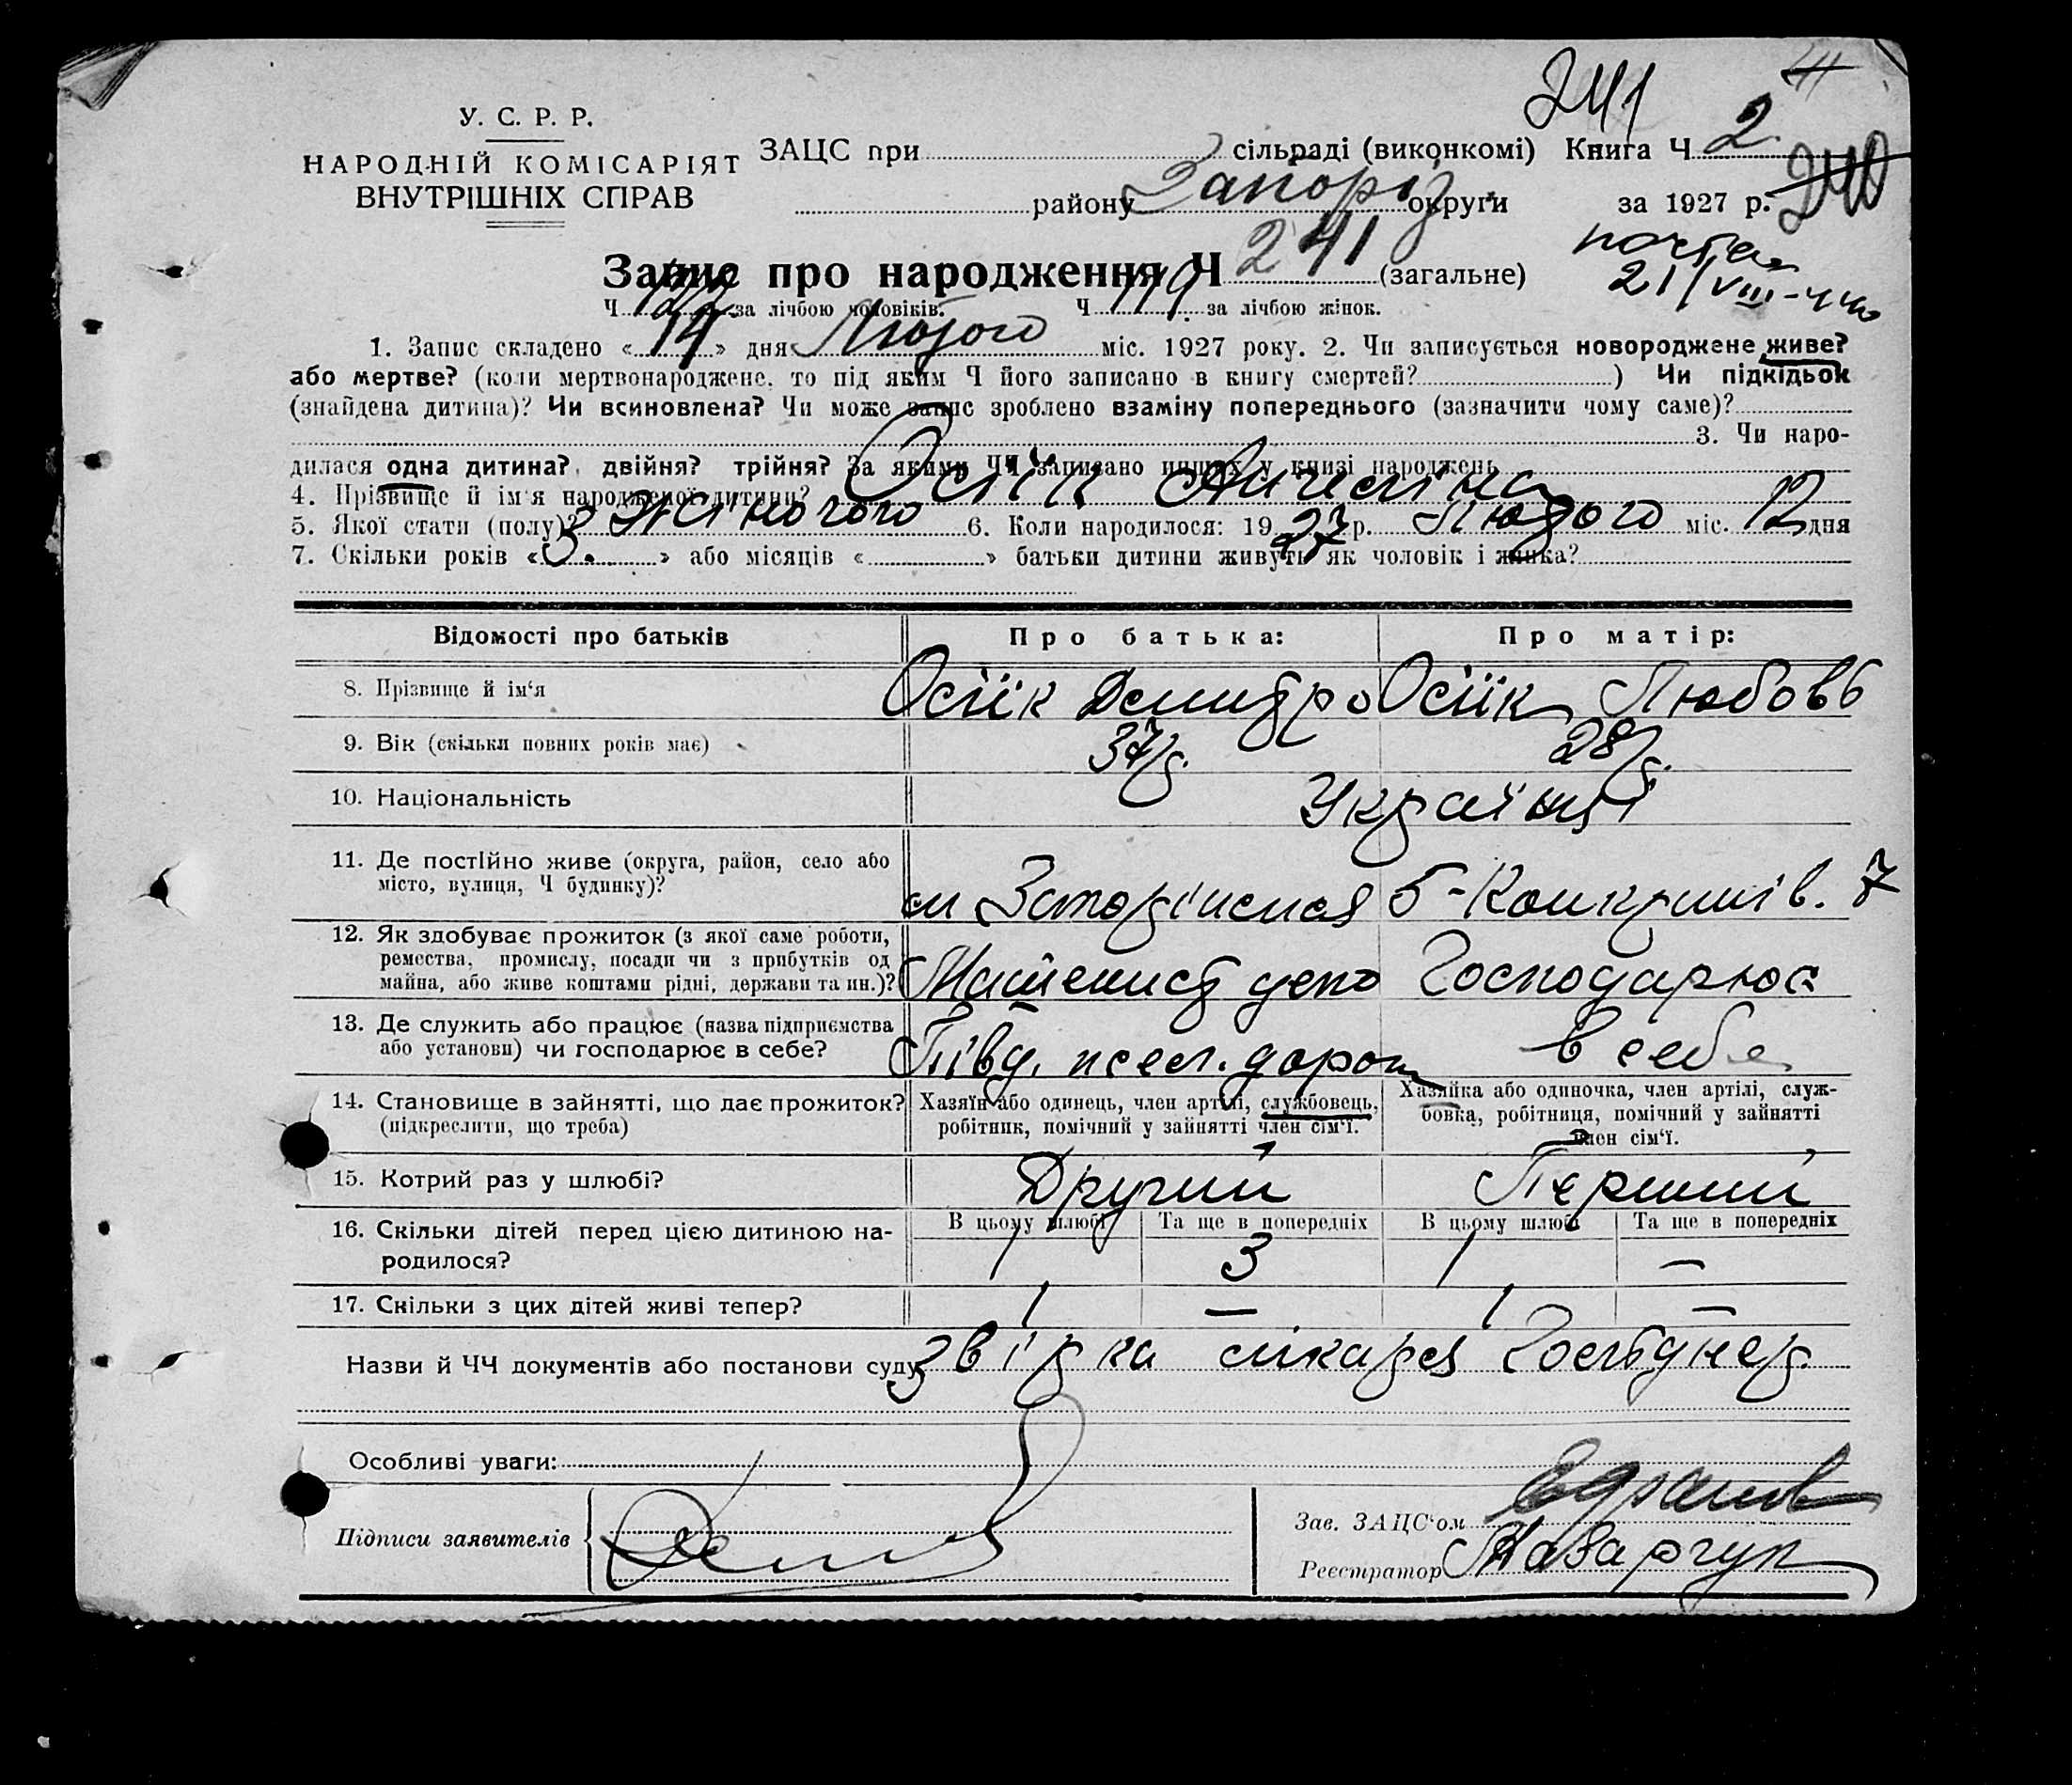 241
У. С. Р. Р.
НАРОДНІЙ КОМІСАРІЯТ
ВНУТРІШНІХ СПРАВ
ЗАЦС при сільраді (виконкомі) Книга Ч 2
240
району Запоріз округи за 1927 р.
Запис про народження Ч 241 (загальне)
21/VIII
Ч 122 за лічбою чоловіків. Ч 119 за лічбою жінок.
1. Запис складено «14» дня Лютого міс. 1927 року. 2. Чи записується новороджене живе?
або мертве? (коли мертвонароджене, то під яким Ч його записано в книгу смертей? ) Чи підкідьок
(знайдена дитина)? Чи всиновлена? Чи може запис зроблено взаміну попереднього (зазначити чому саме)?
3. Чи наро-
дилася одна дитина? двійня? трійня? За якими ЧЧ записано инших у книзі народжень
4. Прізвище й ім'я народженої дитини? Осіїк Ангеліна
5. Якої стати (полу)? Жіночого 6. Коли народилося: 1927 р. Лютого міс. 12 дня
7. Скільки років «3.» або місяців « » батьки дитини живуть як чоловік і жінка?
Відомості про батьків Про батька: Про матір:
8. Прізвище й ім'я Осіїк Дмитро Осіїк Любовь
9. Вік (скільки повних років має) 37 28
10. Національність Українці
11. Де постійно живе (округа, район, село або
місто, вулиця, Ч будинку)? 7
12. Як здобуває прожиток (з якої саме роботи,
ремества, промислу, посади чи з прибутків од
майна, або живе коштами рідні, держави та ин.)? Машенист депо Господарює
13. Де служить або працює (назва підприємства
або установи) чи господарює в себе? Півд. дорог в себе
14. Становище в зайнятті, що дає прожиток?
(підкреслити, що треба)
Хазяїн або одинець, член артілі, службовець,
робітник, помічний у зайнятті член сім'ї.
Хазяйка або одиночка, член артілі, служ-
бовка, робітниця, помічний у зайнятті
член сім'ї.
15. Котрий раз у шлюбі? Другий Перший
В цьому шлюбі Та ще в попередніх В цьому шлюбі Та ще в попередніх
16. Скільки дітей перед цією дитиною на-
родилося? 1 3 1 —
17. Скільки з цих дітей живі тепер? 1 — 1 —
Назви й ЧЧ документів або постанови суду лікаря
Особливі уваги:
Підписи заявителів
Зав. ЗАЦС'ом
Реєстратор Назарчук